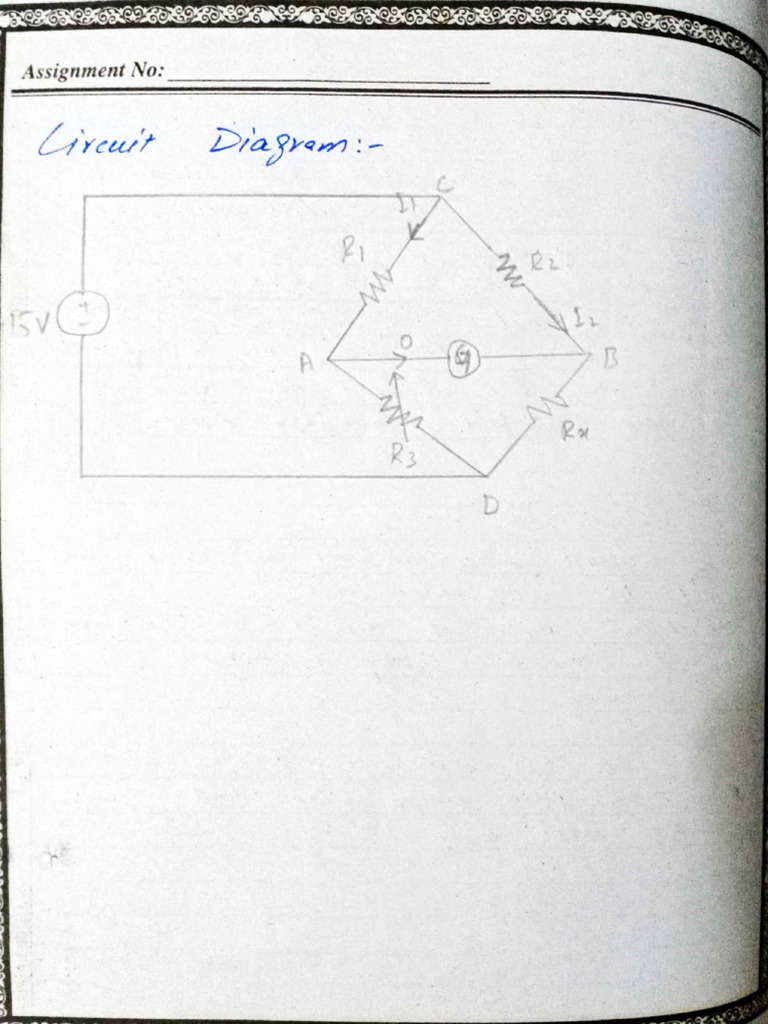 Assignment No:
Circuit Diagram:-
C
I1
R1
R2
15V
+
-
I2
A
O
G
B
R3
Rx
D